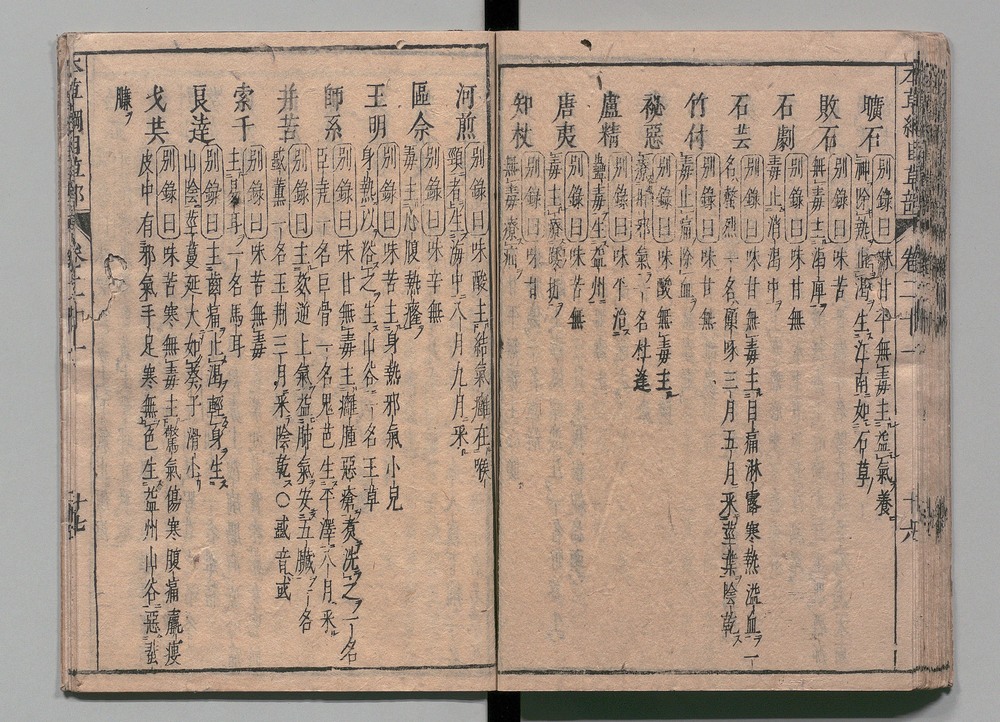 曠石 別錄曰味甘平無毒主益氣養
神除熱止渴生江南如石草
敗石 別錄曰味苦
無毒主渴痺
石劇 別錄曰味甘無
毒止消渴中
石芸 別錄曰味甘無毒主目痛淋露寒熱溢血一
名螫烈一名顧啄三月五月采莖葉陰乾
竹付 別錄曰味甘無
毒止痛除血
秘惡 別錄曰味酸無毒主
療肝邪氣一名杜逢
盧精 別錄曰味平治
蠱毒生益州
唐夷 別錄曰味苦無
毒主療踒折
知杖 別錄曰味甘
無毒療疝
河煎 別錄曰味酸主結氣癰在喉
頸者生海中八月九月采
區余 別錄曰味辛無
毒主心腹熱癃
王明 別錄曰味苦主身熱邪氣小兒
身熱以浴之生山谷一名王草
師系 別錄曰味甘無毒主癰腫惡瘡煮洗之一名
臣堯一名巨骨一名鬼芭生平澤八月采
并苦 別錄曰主欬逆上氣益肺氣安五臟一名
蜮薰一名玉荆三月采陰乾〇蜮音或
索千 別錄曰味苦無毒
主易耳一名馬耳
良達 別錄曰主齒痛止渴輕身生
山陰莖蔓延大如葵子滑小
弋共 別錄曰味苦寒無毒主驚氣傷寒腹痛羸瘦
皮中有邪氣手足寒無色生益州山谷惡蜚
臁
本草綱目草部 卷二十一 十六
本草綱目草部 卷二十一 十七